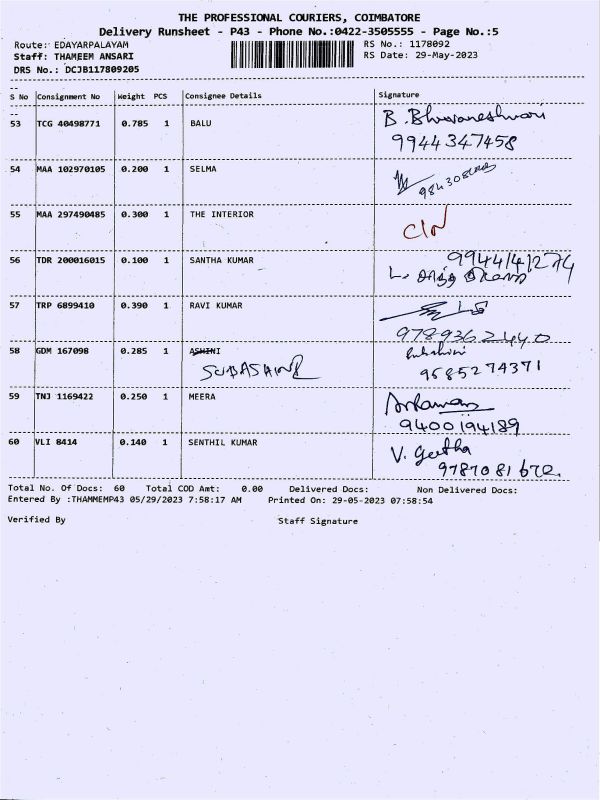 THE PROFESSIONAL COURIERS, COIMBATORE
Delivery Runsheet - P43 - Phone No.:0422-3505555 - Page No.:5
Route: EDAYARPALAYAM
RS No.: 1178092
Staff: THAMEEM ANSARI
RS Date: 29-May-2023
DRS No.: DCJB117809205
S No Consignment No Weight PCS Consignee Details Signature
53 TCG 40498771 0.785 1 BALU B. Bhuvaneshwari
9944347458
54 MAA 102970105 0.200 1 SELMA
55 MAA 297490485 0.300 1 THE INTERIOR
56 TDR 200016015 0.100 1 SANTHA KUMAR
57 TRP 6899410 0.390 1 RAVI KUMAR
9789362440
58 GDM 167098 0.285 1 ASHINI
9585274371
59 TNJ 1169422 0.250 1 MEERA
9400194189
60 VLI 8414 0.140 1 SENTHIL KUMAR V. Geetha
9787081672.
Total No. Of Docs: 60 Total COD Amt: 0.00 Delivered Docs: Non Delivered Docs:
Entered By :THAMMEMP43 05/29/2023 7:58:17 AM Printed On: 29-05-2023 07:58:54
Verified By Staff Signature